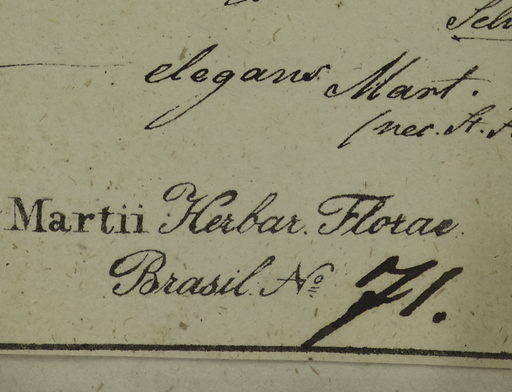 elegans Mart.
(nec. St.
Martii Herbar. Florae
Brasil. No 71.